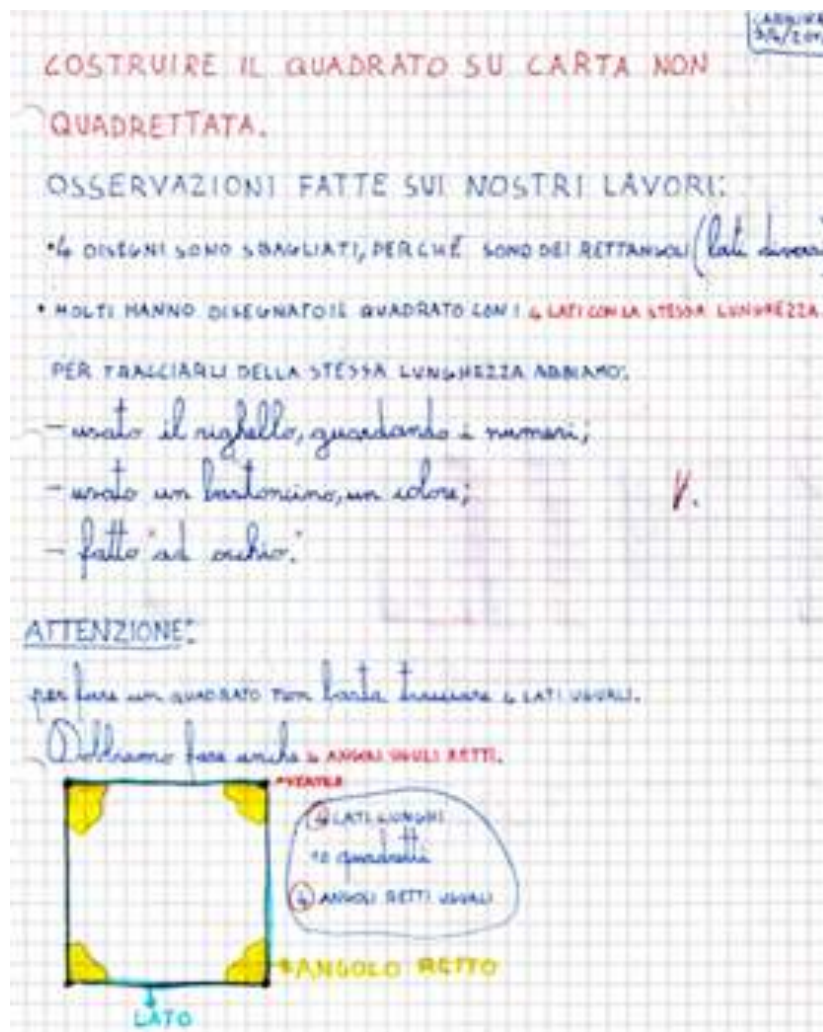 COSTRUIRE IL QUADRATO SU CARTA NON
QUADRETTATA.
OSSERVAZIONI FATTE SUI NOSTRI LAVORI:
• 4 DISEGNI SONO SBAGLIATI, PERCHÉ SONO DEI RETTANGOLI (lati diversi
• MOLTI HANNO DISEGNATO IL QUADRATO CON I 4 LATI CON LA STESSA LUNGHEZZA.
PER TRACCIARLI DELLA STESSA LUNGHEZZA ABBIAMO:
- usato il righello, guardando i numeri;
- usato un bastoncino, un colore;
- fatto "ad occhio".
V.
ATTENZIONE:
per fare un QUADRATO non basta tracciare 4 LATI UGUALI.
Dobbiamo fare anche 4 ANGOLI UGULI RETTI.
VERTICE
4 LATI LUNGHI
10 quadretti
4 ANGOLI RETTI UGUALI
ANGOLO RETTO
LATO